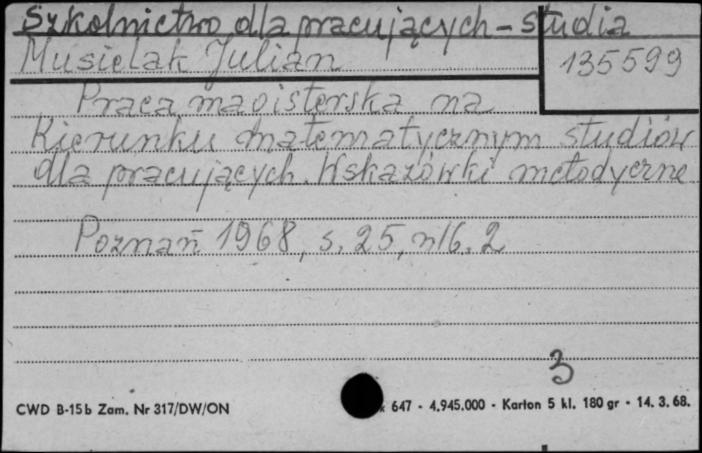 Szkolnictwo dla pracujących - studia
Musielak Julian
135599
Praca magisterska na
kierunku matematycznym studiów
dla pracujących. Wskazówki metodyczne
Poznań 1968, s. 25, nlb. 2
3
CWD B-15b Zam. Nr 317/DW/ON
647 - 4.945.000 - Karton 5 kl. 180 gr - 14. 3. 68.